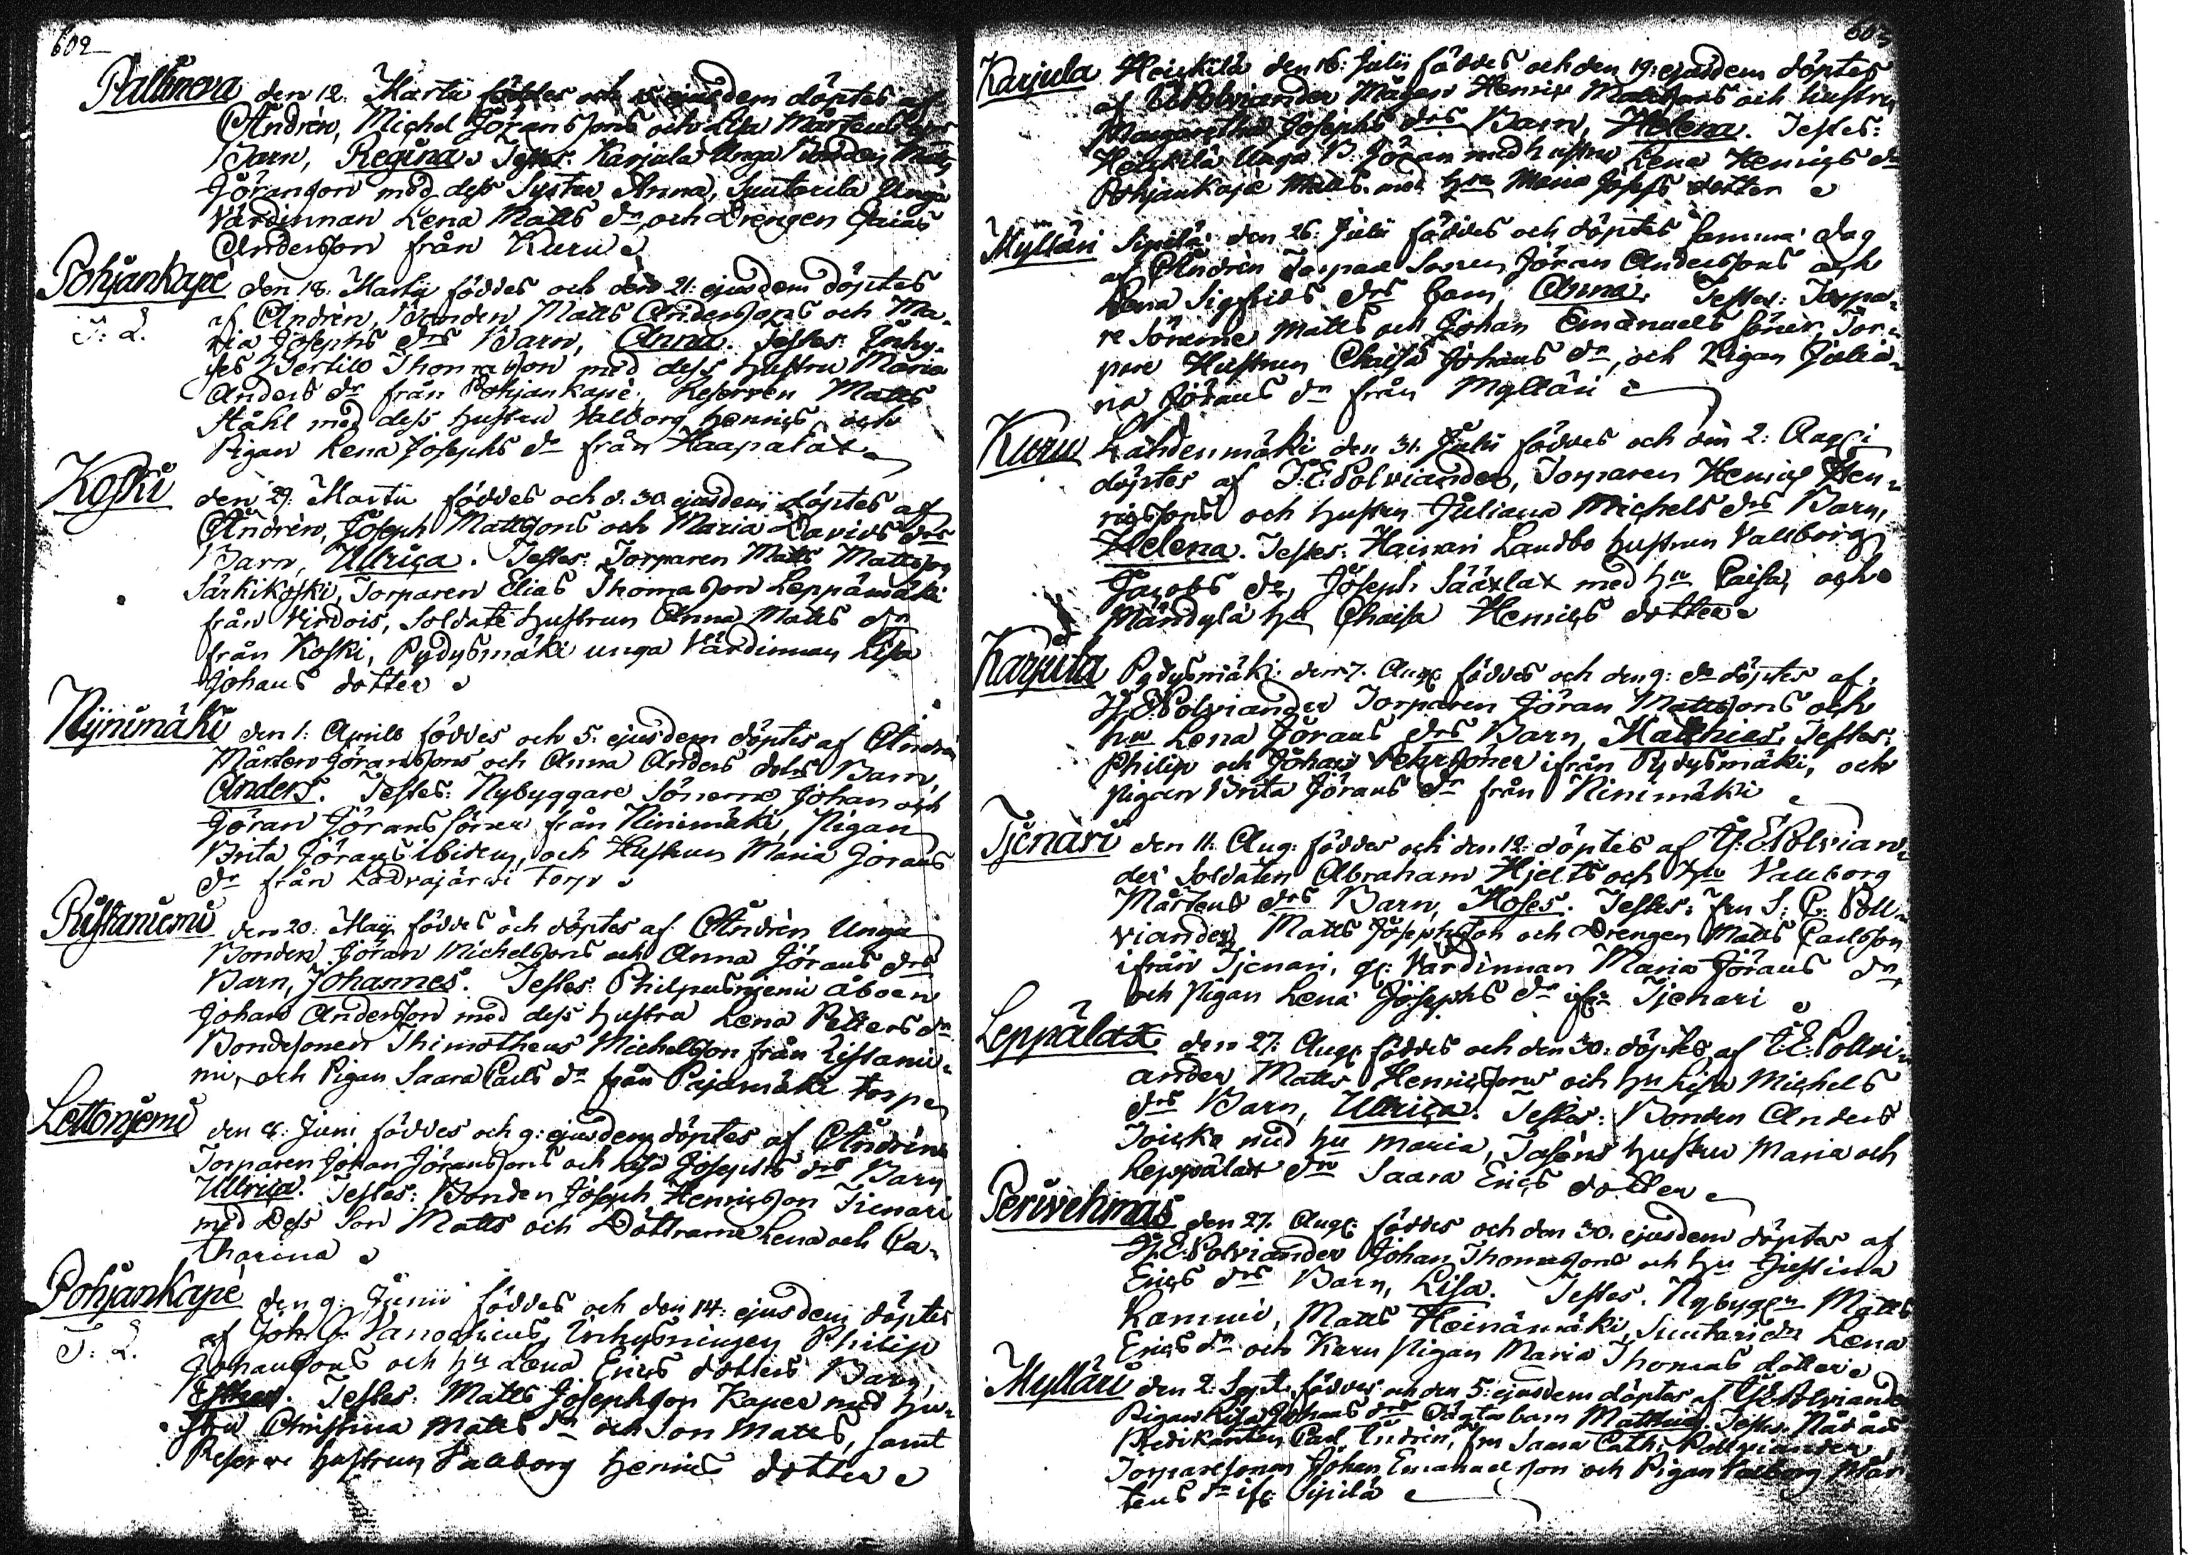 602
Pallineva den 12. Martii föddes och 15 ejusdem döptes af
Andrén, Michel Jöranssons och Lisa Mårtens
Barn, Regina. Testes: Karjula Unga Bonden Matts
Jöransson med dess Syster Anna, Suutarila Unga
Värdinnan Lena Matts dr, och Drengen Esaias
Andersson från Kuru
Pohjankape den 18. Martii föddes och den 21. ejusdem döptes
af Andrén, Bonden Matts Anderssons och Ma-
T: L. ria Josephs drs Barn, Anna. Testes: Inhy-
ses Bertill Thomasson med dess hustru Maria
Anders dr från Pohjankape, Reserven Matts
Ståhl med dess hustru Valborg Henrics och
Pigan Lena Josephs dr från Haapalax
Koski den 29. Martii föddes och d. 30. ejusdem döptes af
Andrén, Joseph Mattssons och Maria Davids drs
Barn, Ullrica. Testes: Torparen Matts Mattsson
Särkikoski, Torparen Elias Thomasson Leppämäki
från Virdois, Soldate hustrun Anna Matts dr
från Koski, Pydysmäki unga Värdinnan Lisa
Johans dotter
Nijnimäki den 1. Aprill föddes och 5. ejusdem döptes af Andrén
Mårten Jöranssons och Anna Anders dotrs Barn,
Anders. Testes: Nybyggare Sönerne Johan och
Jöran Jörans söner från Ninimäki, Pigan
Brita Jörans ibidem, och Hustrun Maria Jörans
dr från Ladvajärvi torp
Ristaniemi den 20. Maji föddes och döptes af Andrén Unga
Bonden Jöran Michelssons och Anna Jörans drs
Barn, Johannes. Testes: Philpusnjemi åboen
Johan Andersson med dess hustru Lena Petters dr
Bondesonen Thimotheus Michelsson från Ristanie-
mi, och Pigan Saara Carls dr från Pajamäki torp
Lettonjemi den 8. Juni föddes och 9. ejusdem döptes af Andrén
Torparen Johan Jöranssons och Lisa Josephs drs Barn
Ullrica. Testes: Bonden Joseph Henricsson Tienari
med Dess Son Matts och Döttrarne Lena och Ca-
tharina
Pohjankape den 9. Junii föddes och den 14. ejusdem döptes
T: L. af Joh: G: Vanochius, Inhysningen Philip
Johanssons och hu Lena Erics dotters Barn,
Esther. Testes: Matts Josephsson Kapee med hu-
stru Christina Matts dr och Son Matts, samt
Reserve hustrun Valborg Henrics dotter
603
Karjula Heickilä den 16. Julii föddes och den 19. ejusdem döptes
af Polviander Mågen Henric Mattssons och hustru
Margaretha Josephs drs Barn, Helena. Testes:
Heickilä Unga B. Jöran med hustru Lena Henrics dr
Pohjankape Matts med hru Maria Josephs dotter
Mylläri Sipilä den 26. Julii föddes och döptes samma dag
af Andrén Torpare Sonen Jöran Anderssons och
Lena Sigfrids drs barn, Anna. Testes: Torpa-
re Sönerne Matts och Johan Emanuels söner, Tor-
pare Hustrun Chaisa Johans dr, och Pigan Julia-
na Jörans dr från Mylläri
Kuru Lähdenmäki den 31. Julii föddes och din 2. Augti
döptes af J:E:Polviander, Torparen Henric Hen-
ricssons och hustru Juliana Michels drs Barn,
Helena. Testes: Hainari Landbo hustrun Vallborg
Jacobs dr, Joseph Sääxlax med hu Caisa, och
Mändylä hu Chaisa Henrics dotter
Karjula Pydysmäki den 7. Aug. föddes och den 9. do döptes af
J.E.Polviander Torparen Jöran Mattssons och
hu Lena Jörans drs Barn, Matthias. Testes:
Philip och Johan Pehrsöner ifrån Pydysmäki, och
Pigan Brita Jörans dr från Ninimäki
Tjenari den 11. Aug. föddes och den 12. döptes af J:E:Polvian-
der Soldaten Abraham Hjelts och hu Vallborg
Mårtens drs Barn, Moses. Testes: fru S: C: Poll-
viander, Matts Josephsson och Drengen Matts Carlsson
ifrån Tjenari, gl: Värdinnan Maria Jörans dr,
och Pigan Lena Josephs dr ifr Tjenari
Leppälax den 27. Aug. föddes och den 30. döptes af J:E:Pollvi-
ander Matts Henricssons och hu Lisa Michels
drs Barn, Ullrica. Testes: Bonden Anders
Toiska med hu Maria, hustru Maria och
Leppälax dr Saara Erics dotter
Perivehmas den 27. Aug. föddes och den 30. ejusdem döptes af
J.E.Polviander Johan Thomassons och hu Justina
Erics drs Barn, Lisa. Testes: Nybyggn Matts
Lammi, Matts Heinämäki, Suutari dr Lena
Erics dr och Kuru Pigan Maria Thomas dotter
Mylläri den 2. Sept. föddes och den 5. ejusdem döptes af J:E:Polviander
Pigan Lisa Johans drs Oägta barn Matthias. Testes: Nådårs
Predikanten Carl Andrén, fru Saara Cath: Pollviander,
Torparesonen Johan Emanuelsson och Pigan Valborg Mår-
tens dr ifr Sipilä